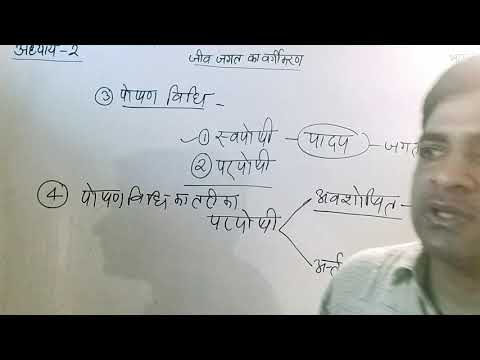 अध्याय-2
जीव जगत का वर्गीकरण
③ पोषण विधि -
① स्वपोषी - पादप - जगत
② परपोषी
④ पोषण विधि का तरीका
परपोषी
अवशोषित -